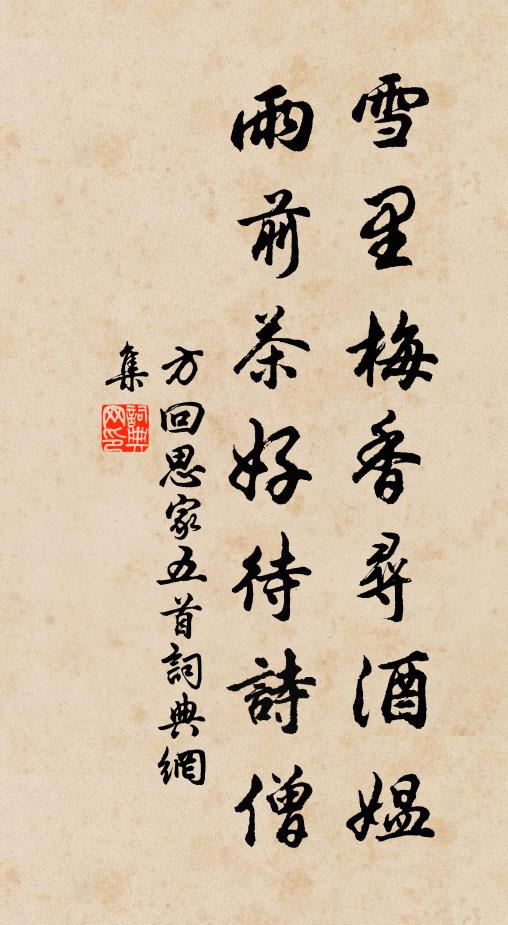 雪里梅香尋酒媼
雨前茶好待詩僧
方回思家五首詞典網
集
詞典网印